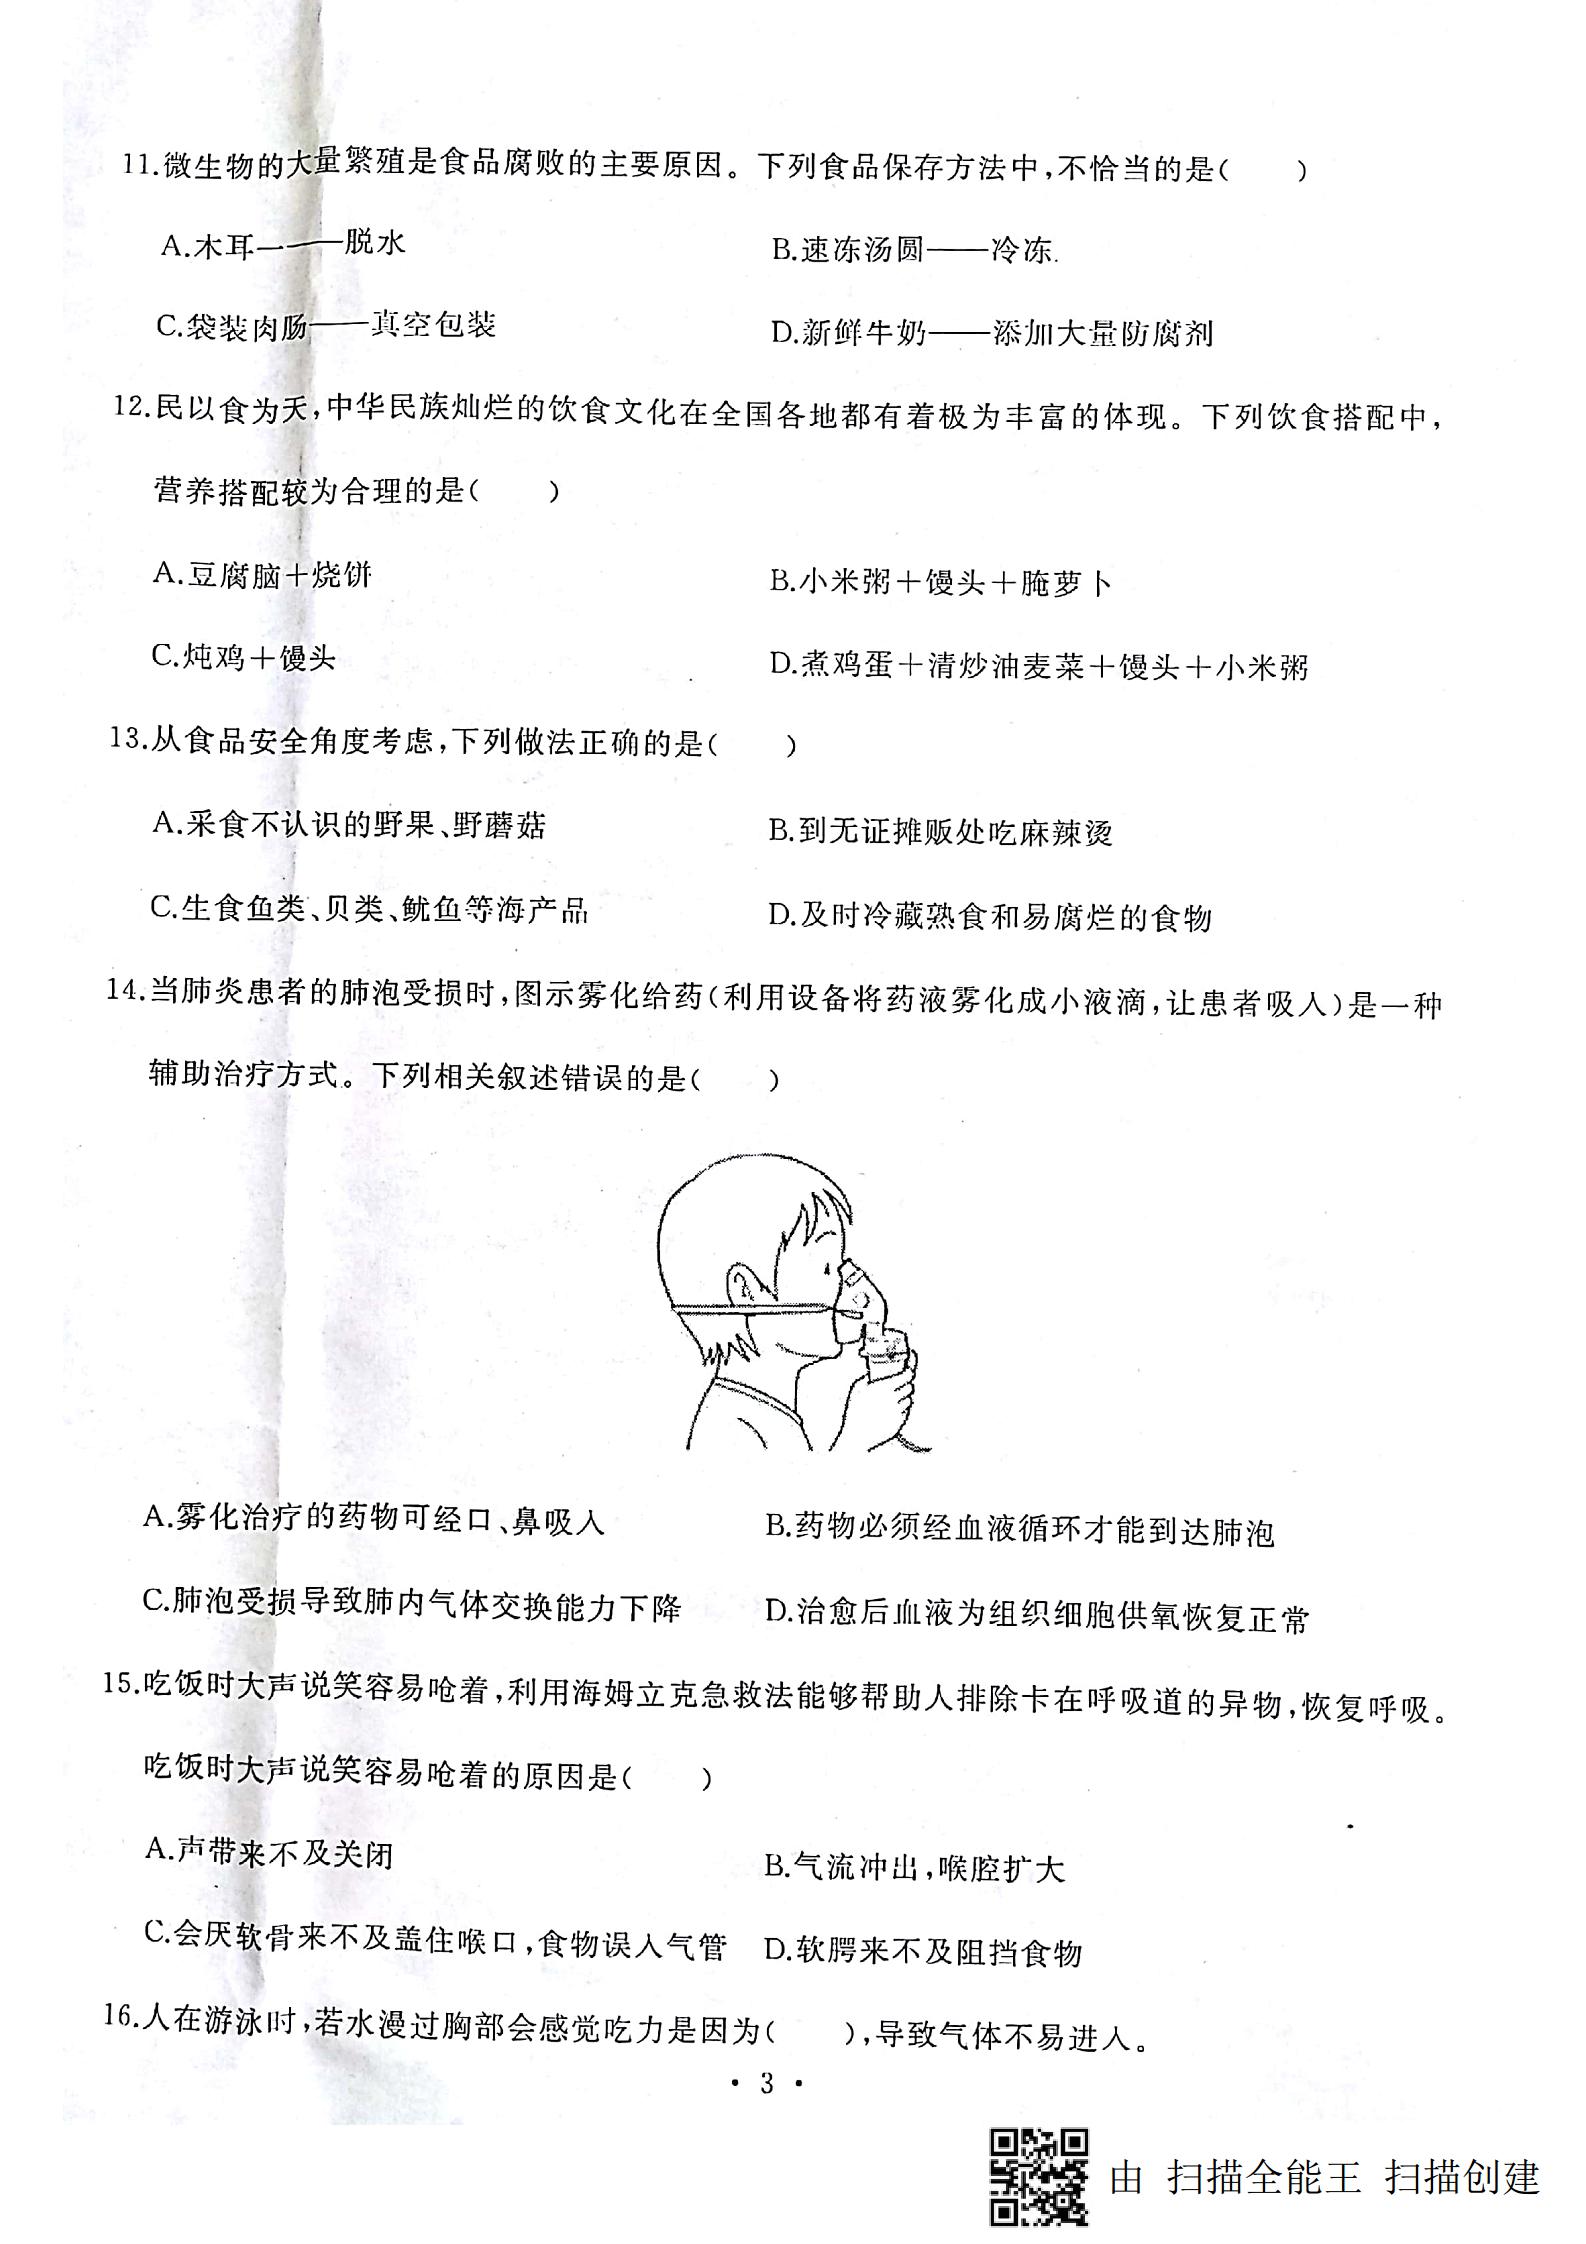 11.微生物的大量繁殖是食品腐败的主要原因。下列食品保存方法中,不恰当的是(　　)
A.木耳——脱水　　B.速冻汤圆——冷冻
C.袋装肉肠——真空包装　　D.新鲜牛奶——添加大量防腐剂
12.民以食为天,中华民族灿烂的饮食文化在全国各地都有着极为丰富的体现。下列饮食搭配中,
营养搭配较为合理的是(　　)
A.豆腐脑+烧饼　　B.小米粥+馒头+腌萝卜
C.炖鸡+馒头　　D.煮鸡蛋+清炒油麦菜+馒头+小米粥
13.从食品安全角度考虑,下列做法正确的是(　　)
A.采食不认识的野果、野蘑菇　　B.到无证摊贩处吃麻辣烫
C.生食鱼类、贝类、鱿鱼等海产品　　D.及时冷藏熟食和易腐烂的食物
14.当肺炎患者的肺泡受损时,图示雾化给药(利用设备将药液雾化成小液滴,让患者吸入)是一种
辅助治疗方式。下列相关叙述错误的是(　　)
A.雾化治疗的药物可经口、鼻吸入　　B.药物必须经血液循环才能到达肺泡
C.肺泡受损导致肺内气体交换能力下降　　D.治愈后血液为组织细胞供氧恢复正常
15.吃饭时大声说笑容易呛着,利用海姆立克急救法能够帮助人排除卡在呼吸道的异物,恢复呼吸。
吃饭时大声说笑容易呛着的原因是(　　)
A.声带来不及关闭　　B.气流冲出,喉腔扩大
C.会厌软骨来不及盖住喉口,食物误入气管　　D.软腭来不及阻挡食物
16.人在游泳时,若水漫过胸部会感觉吃力是因为(　　),导致气体不易进入。
• 3 •
由 扫描全能王 扫描创建